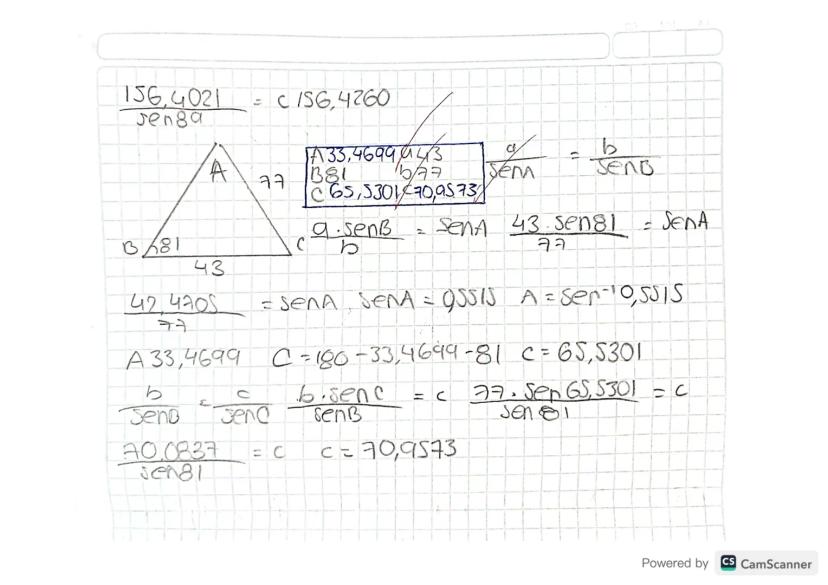 156,4021 / sen89 = c 156,4260
A 77 B 81 43 C
A 33,4699 a 43
B 81 b 77
C 65,5301 c 70,9573
a / senA = b / senB
a . senB / b = senA 43 . sen81 / 77 = senA
42,4705 / 77 = senA, senA = 0,5515 A = sen⁻¹ 0,5515
A 33,4699 C = 180 - 33,4699 - 81 C = 65,5301
b / senB = c / senC b . senC / senB = c 77 . sen 65,5301 / sen 81 = c
70,0837 / sen81 = c c = 70,9573
Powered by CS CamScanner